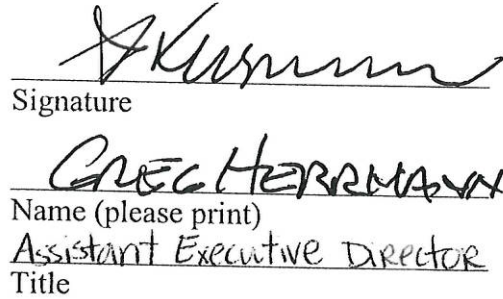 Signature
GREG HERRMANN
Name (please print)
Assistant Executive Director
Title